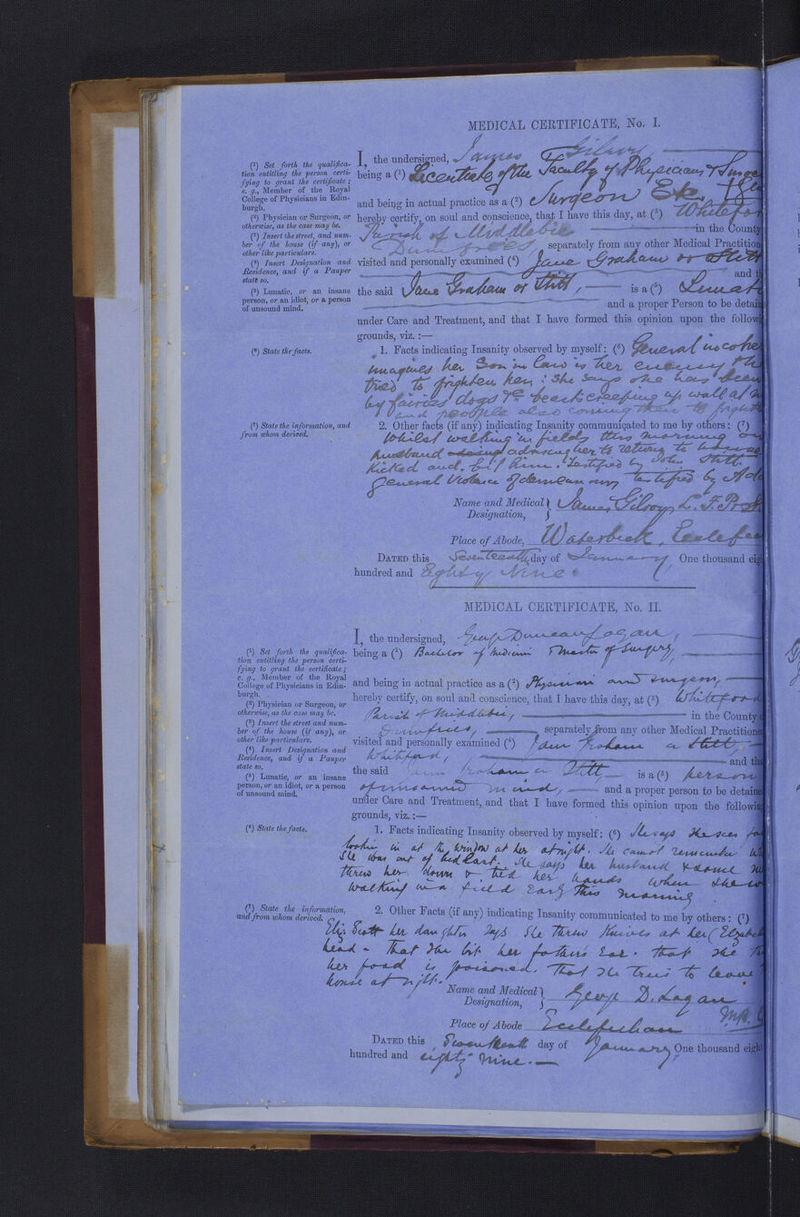 MEDICAL CERTIFICATE, No. I.
(1) Set forth the qualifica-
tion entitling the person certi-
fying to grant the certificate;
e. g., Member of the Royal
College of Physicians in Edin-
burgh.
(2) Physician or Surgeon, or
otherwise, as the case may be.
(3) Insert the street, and num-
ber of the house (if any), or
other like particulars.
(4) Insert Designation and
Residence, and if a Pauper
state so.
(5) Lunatic, or an insane
person, or an idiot, or a person
of unsound mind.
I, the undersigned, James Gilroy
being a (1) Licentiate of the Faculty of Physicians & Surge
and being in actual practice as a (2) Surgeon
hereby certify, on soul and conscience, that I have this day, at (3) Whitefor
Parish of Middlebie in the County
Dumfrees separately from any other Medical Practition
visited and personally examined (4) Jane Graham or Stitt
and th
the said Jane Graham or Stitt, is a (5) Lunati
and a proper Person to be detain
under Care and Treatment, and that I have formed this opinion upon the followi
grounds, viz. :—
(6) State the facts.
1. Facts indicating Insanity observed by myself: (6) General incohe
imagines her Son in Law is her enemy
tried to frighten her: She says she has been
by fairies dogs &c beasts creeping up wall at n
and people also coming to fright
(7) State the information, and
from whom derived.
2. Other facts (if any) indicating Insanity communicated to me by others: (7)
Whilst walking in fields this morning on
husband advising her to return to
Kicked and bit him. Testified by John Stitt.
General Violence of demeanour testified by
Name and Medical Designation, James Gilroy, L. F. P.
Place of Abode, Waterbeck, Ecclefec
DATED this Seventeenth day of January One thousand eig
hundred and Eighty Nine
MEDICAL CERTIFICATE, No. II.
(1) Set forth the qualifica-
tion entitling the person certi-
fying to grant the certificate;
e. g., Member of the Royal
College of Physicians in Edin-
burgh.
(2) Physician or Surgeon, or
otherwise, as the case may be.
(3) Insert the street and num-
ber of the house (if any), or
other like particulars.
(4) Insert Designation and
Residence, and if a Pauper
state so.
(5) Lunatic, or an insane
person, or an idiot, or a person
of unsound mind.
I, the undersigned, George Duncan Logan,
being a (1) Bachelor of Medicine & Master of Surgery,
and being in actual practice as a (2) Physician and surgeon,
hereby certify, on soul and conscience, that I have this day, at (3) Whitefoord
Parish of Middlebie, in the County
Dumfries, separately from any other Medical Practitione
visited and personally examined (4) Jane Graham or Stitt,
Whitefoord, and the
the said Jane Graham or Stitt is a (5) person
of unsound mind, and a proper person to be detaine
under Care and Treatment, and that I have formed this opinion upon the followin
grounds, viz. :—
(6) State the facts.
1. Facts indicating Insanity observed by myself: (6) She says she sees
looking in at the window at her at night. She cannot remember
She was out of bed last. She says her husband & some
threw her down & tied her hands when she
walking in a field early this morning.
(7) State the information,
and from whom derived.
2. Other Facts (if any) indicating Insanity communicated to me by others: (7)
Eliz. Scott her daughter says She threw knives at her (Elizabe
head - That she bit her father's Ear. That she
her food is poisoned. That she tries to leave
house at night.
Name and Medical Designation, George D. Logan
Place of Abode Ecclefechan
DATED this Seventeenth day of January One thousand eigh
hundred and eighty nine.